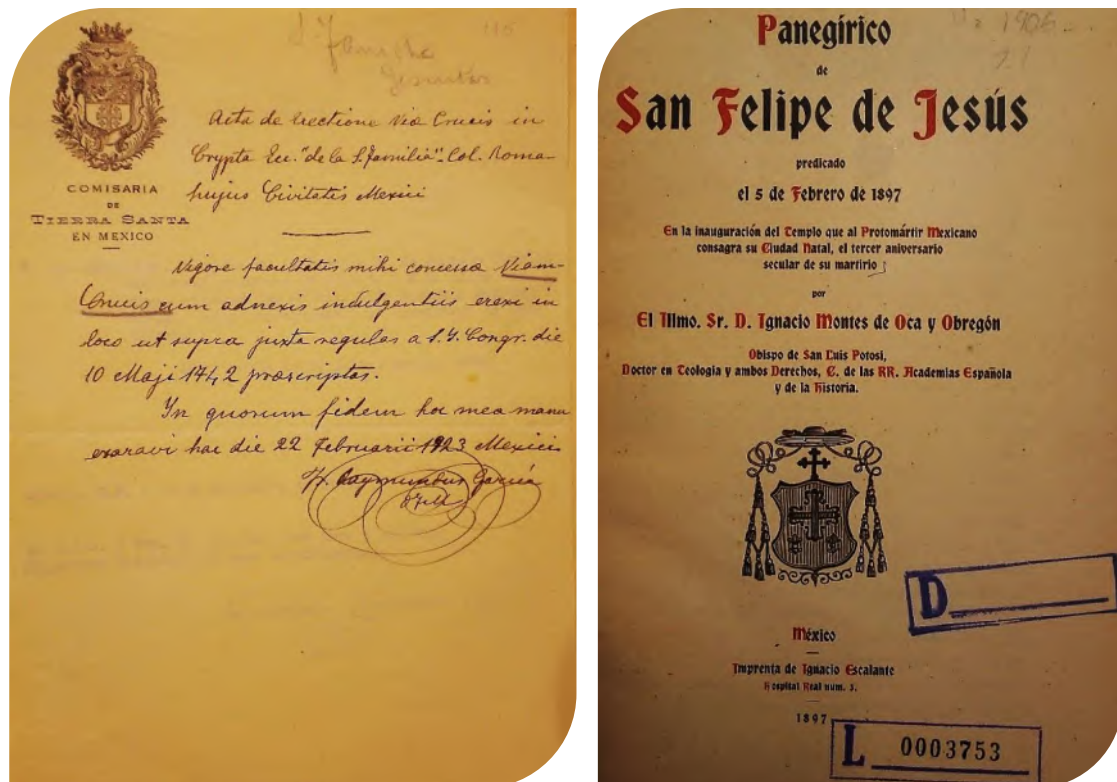 S. Familia 115
Jesuitas
COMISARIA
DE
TIERRA SANTA
EN MEXICO
Acta de erectione Viæ Crucis in
Crypta Ecc. "de la S. Familia". Col. Roma-
hujus Civitatis Mexici
Vigore facultatis mihi concessæ Viam-
Crucis cum adnexis indulgentiis erexi in
loco ut supra juxta regulas a S. I. Congr. die
10 Maji 1742 præscriptas.
In quorum fidem hoc mea manu
exaravi hac die 22 Februarii 1923 Mexici
Fr. Raymundus García
O F M
1906
21
Panegírico
de
San Felipe de Jesús
predicado
el 5 de Febrero de 1897
En la inauguración del Templo que al Protomártir Mexicano
consagra su Ciudad Natal, el tercer aniversario
secular de su martirio
por
El Illmo. Sr. D. Ignacio Montes de Oca y Obregón
Obispo de San Luis Potosí,
Doctor en Teología y ambos Derechos, C. de las RR. Academias Española
y de la Historia.
D
México
Imprenta de Ignacio Escalante
Hospital Real num. 3.
1897
L 0003753